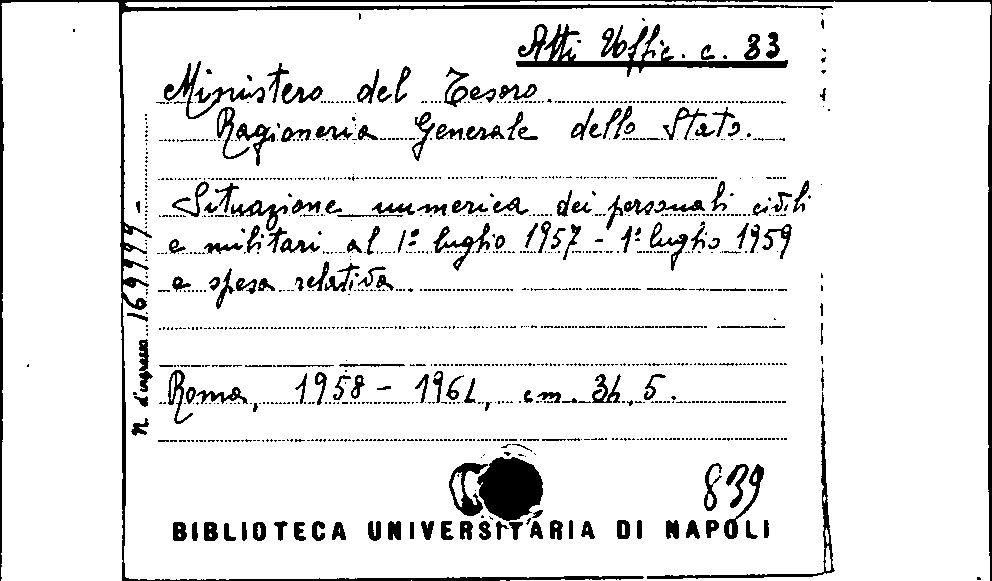 Atti Uffic. c. 33
Ministero del Tesoro.
Ragioneria Generale dello Stato.
Situazione numerica dei personali civili
e militari al 1º luglio 1957 - 1º luglio 1959
e spesa relativa.
Roma, 1958 - 1961, cm. 34,5.
N. d'ingresso 169999 -
839
BIBLIOTECA UNIVERSITARIA DI NAPOLI